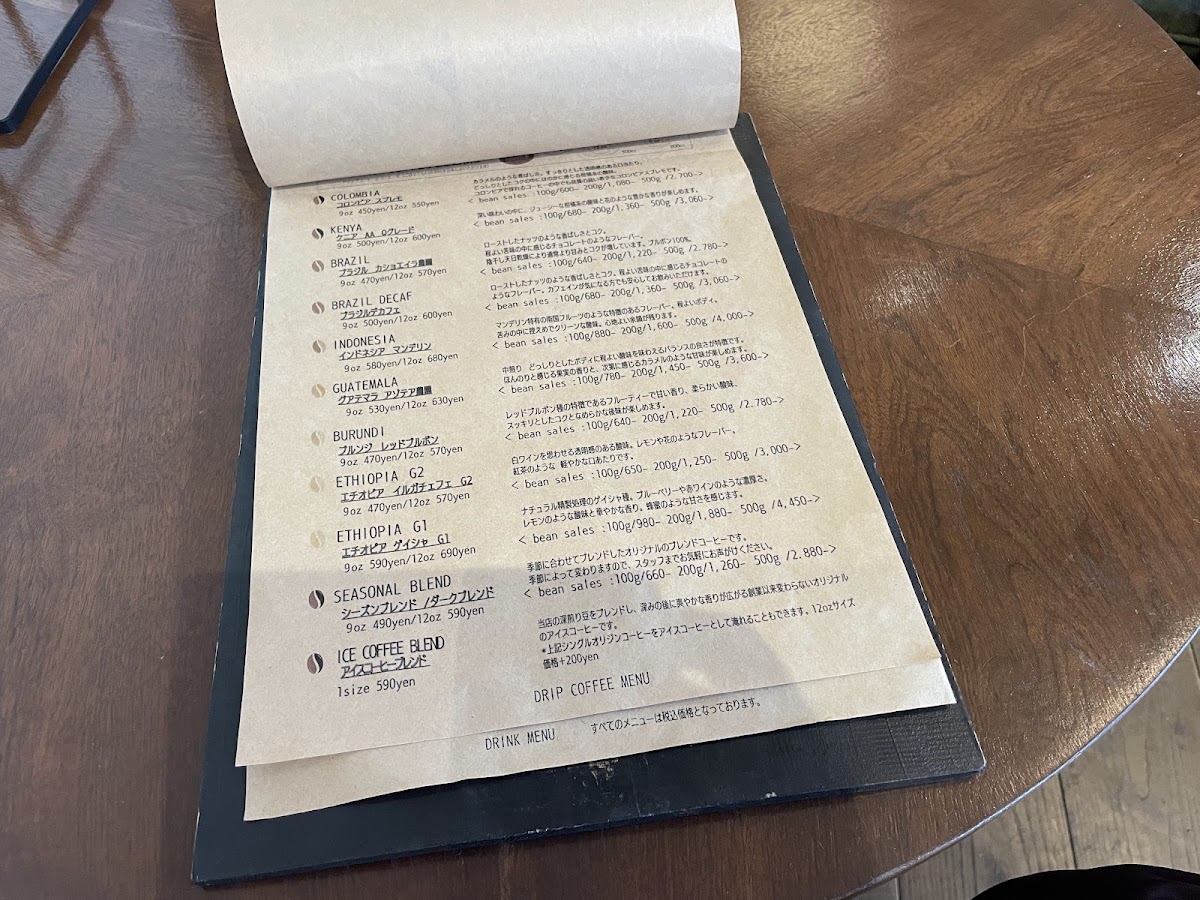 COLOMBIA
コロンビア スプレモ
9oz 450yen/12oz 550yen
カラメルのような香ばしさ。すっきりとした透明感のある口当たり。
どっしりとしたコクの中にほのかに感じる柑橘系の酸味。
コロンビアで採れるコーヒーの中でも品質の高い希少なコロンビアスプレモです。
< bean sales :100g/600− 200g/1,080− 500g /2,700−>
KENYA
ケニア AA Oグレード
9oz 500yen/12oz 600yen
深い味わいの中に、ジューシーな柑橘系の酸味と花のような豊かな香りが楽しめます。
< bean sales :100g/680− 200g/1,360− 500g /3,060−>
BRAZIL
ブラジル カショエイラ農園
9oz 470yen/12oz 570yen
ローストしたナッツのような香ばしさとコク。
程よい苦味の中に感じるチョコレートのようなフレーバー。
陰干し天日乾燥により通常より甘みとコクが増しています。ブルボン100%。
< bean sales :100g/640− 200g/1,220− 500g /2.780−>
BRAZIL DECAF
ブラジルデカフェ
9oz 500yen/12oz 600yen
ローストしたナッツのような香ばしさとコク。程よい苦味の中に感じるチョコレートの
ようなフレーバー。カフェインが気になる方でも安心してお飲みいただけます。
< bean sales :100g/680− 200g/1,360− 500g /3,060−>
INDONESIA
インドネシア マンデリン
9oz 580yen/12oz 680yen
マンデリン特有の南国フルーツのような特徴のあるフレーバー。程よいボディ。
苦みの中に控えめでクリーンな酸味。心地よい余韻が残ります。
< bean sales :100g/880− 200g/1,600− 500g /4,000−>
GUATEMALA
グアテマラ アゾテア農園
9oz 530yen/12oz 630yen
中煎り どっしりとしたボディに程よい酸味を味わえるバランスの良さが特徴です。
ほんのりと感じる果実の香りと、次第に感じるカラメルのような甘味が楽しめます。
< bean sales :100g/780− 200g/1,450− 500g /3,600−>
BURUNDI
ブルンジ レッドブルボン
9oz 470yen/12oz 570yen
レッドブルボン種の特徴であるフルーティーで甘い香り、柔らかい酸味、
スッキリとしたコクとなめらかな後味が楽しめます。
< bean sales :100g/640− 200g/1,220− 500g /2.780−>
ETHIOPIA G2
エチオピア イルガチェフェ G2
9oz 470yen/12oz 570yen
白ワインを思わせる透明感のある酸味。レモンや花のようなフレーバー。
紅茶のような 軽やかな口あたりです。
< bean sales :100g/650− 200g/1,250− 500g /3,000−>
ETHIOPIA G1
エチオピア ゲイシャ G1
9oz 590yen/12oz 690yen
ナチュラル精製処理のゲイシャ種。ブルーベリーや赤ワインのような濃厚さ。
レモンのような酸味と華やかな香り。蜂蜜のような甘さを感じます。
< bean sales :100g/980− 200g/1,880− 500g /4,450−>
SEASONAL BLEND
シーズンブレンド /ダークブレンド
9oz 490yen/12oz 590yen
季節に合わせてブレンドしたオリジナルのブレンドコーヒーです。
季節によって変わりますので、スタッフまでお気軽にお声がけください。
< bean sales :100g/660− 200g/1,260− 500g /2.880−>
ICE COFFEE BLEND
アイスコーヒーブレンド
1size 590yen
当店の深煎り豆をブレンドし、深みの後に爽やかな香りが広がる創業以来変わらないオリジナル
のアイスコーヒーです。
*上記シングルオリジンコーヒーをアイスコーヒーとして淹れることもできます。12ozサイズ
価格+200yen
DRIP COFFEE MENU
DRINK MENU すべてのメニューは税込価格となっております。